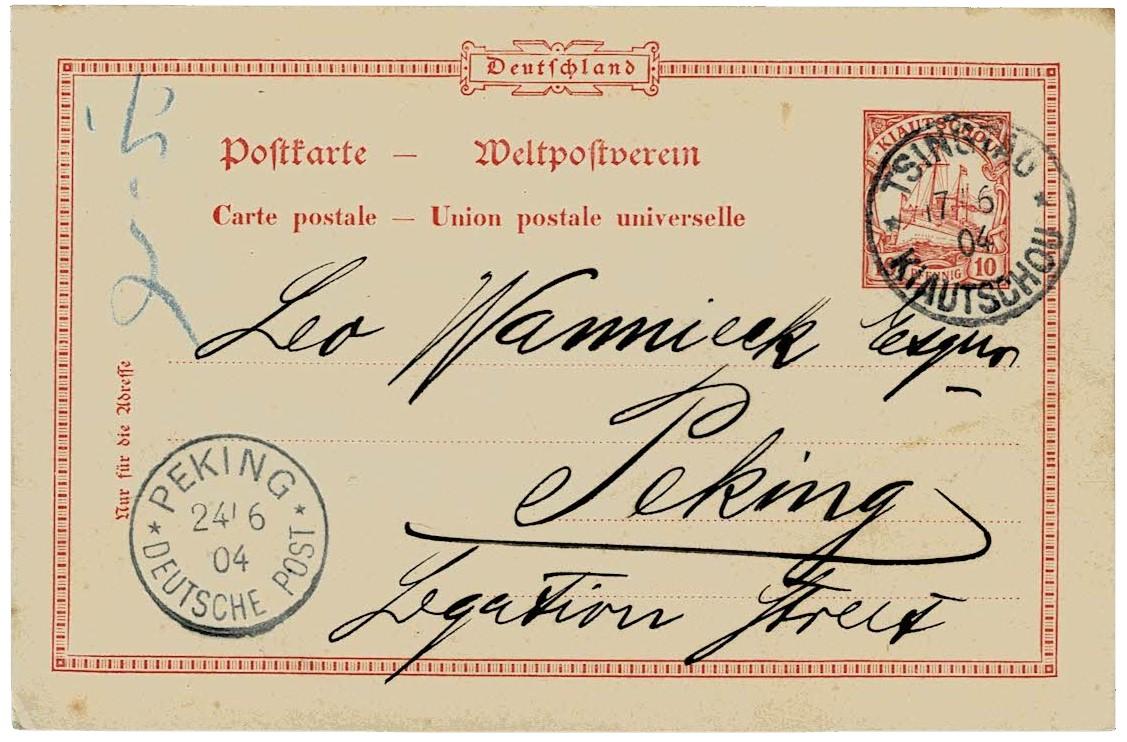 Deutschland
Postkarte — Weltpostverein
Carte postale — Union postale universelle
KIAUTSCHOU
10 PFENNIG 10
TSINGTAU
17 6
04
KIAUTSCHOU
Leo Wannieck Esqur
Peking
Legation Street
Nur für die Adresse
PEKING
24 6
04
DEUTSCHE POST